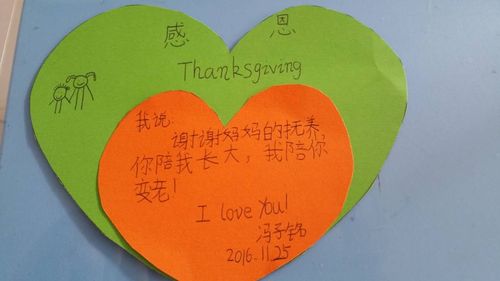 感 恩
Thanksgiving
我说:
谢谢妈妈的抚养,
你陪我长大，我陪你
变老!
I love You!
冯子铭
2016.11.25